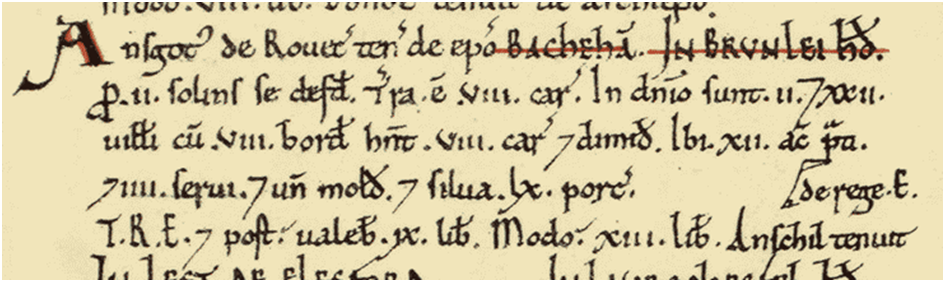 modo. VIII. lib.
Ansgot' de Rouec' ten' de ep̄o BACHEHĀ. IN BRVNLEI HD̄.
p̱. II. solins se defd̄. T'ra .ē. VIII. car'. In dn̄io sunt. II. ⁊ XXII.
uill̄i cū .VIII. bord̄ hn̄t .VIII. car' ⁊ dimid̄. Ibi. XII. ac̄ p̄ti.
⁊ IIII. serui. ⁊ un̄ mold̄. ⁊ silua. LX. porc'.
de rege. E.
T.R.E. ⁊ post: ualeb̄. IX. lib̄. Modo: XIII. lib̄. Anschil tenuit